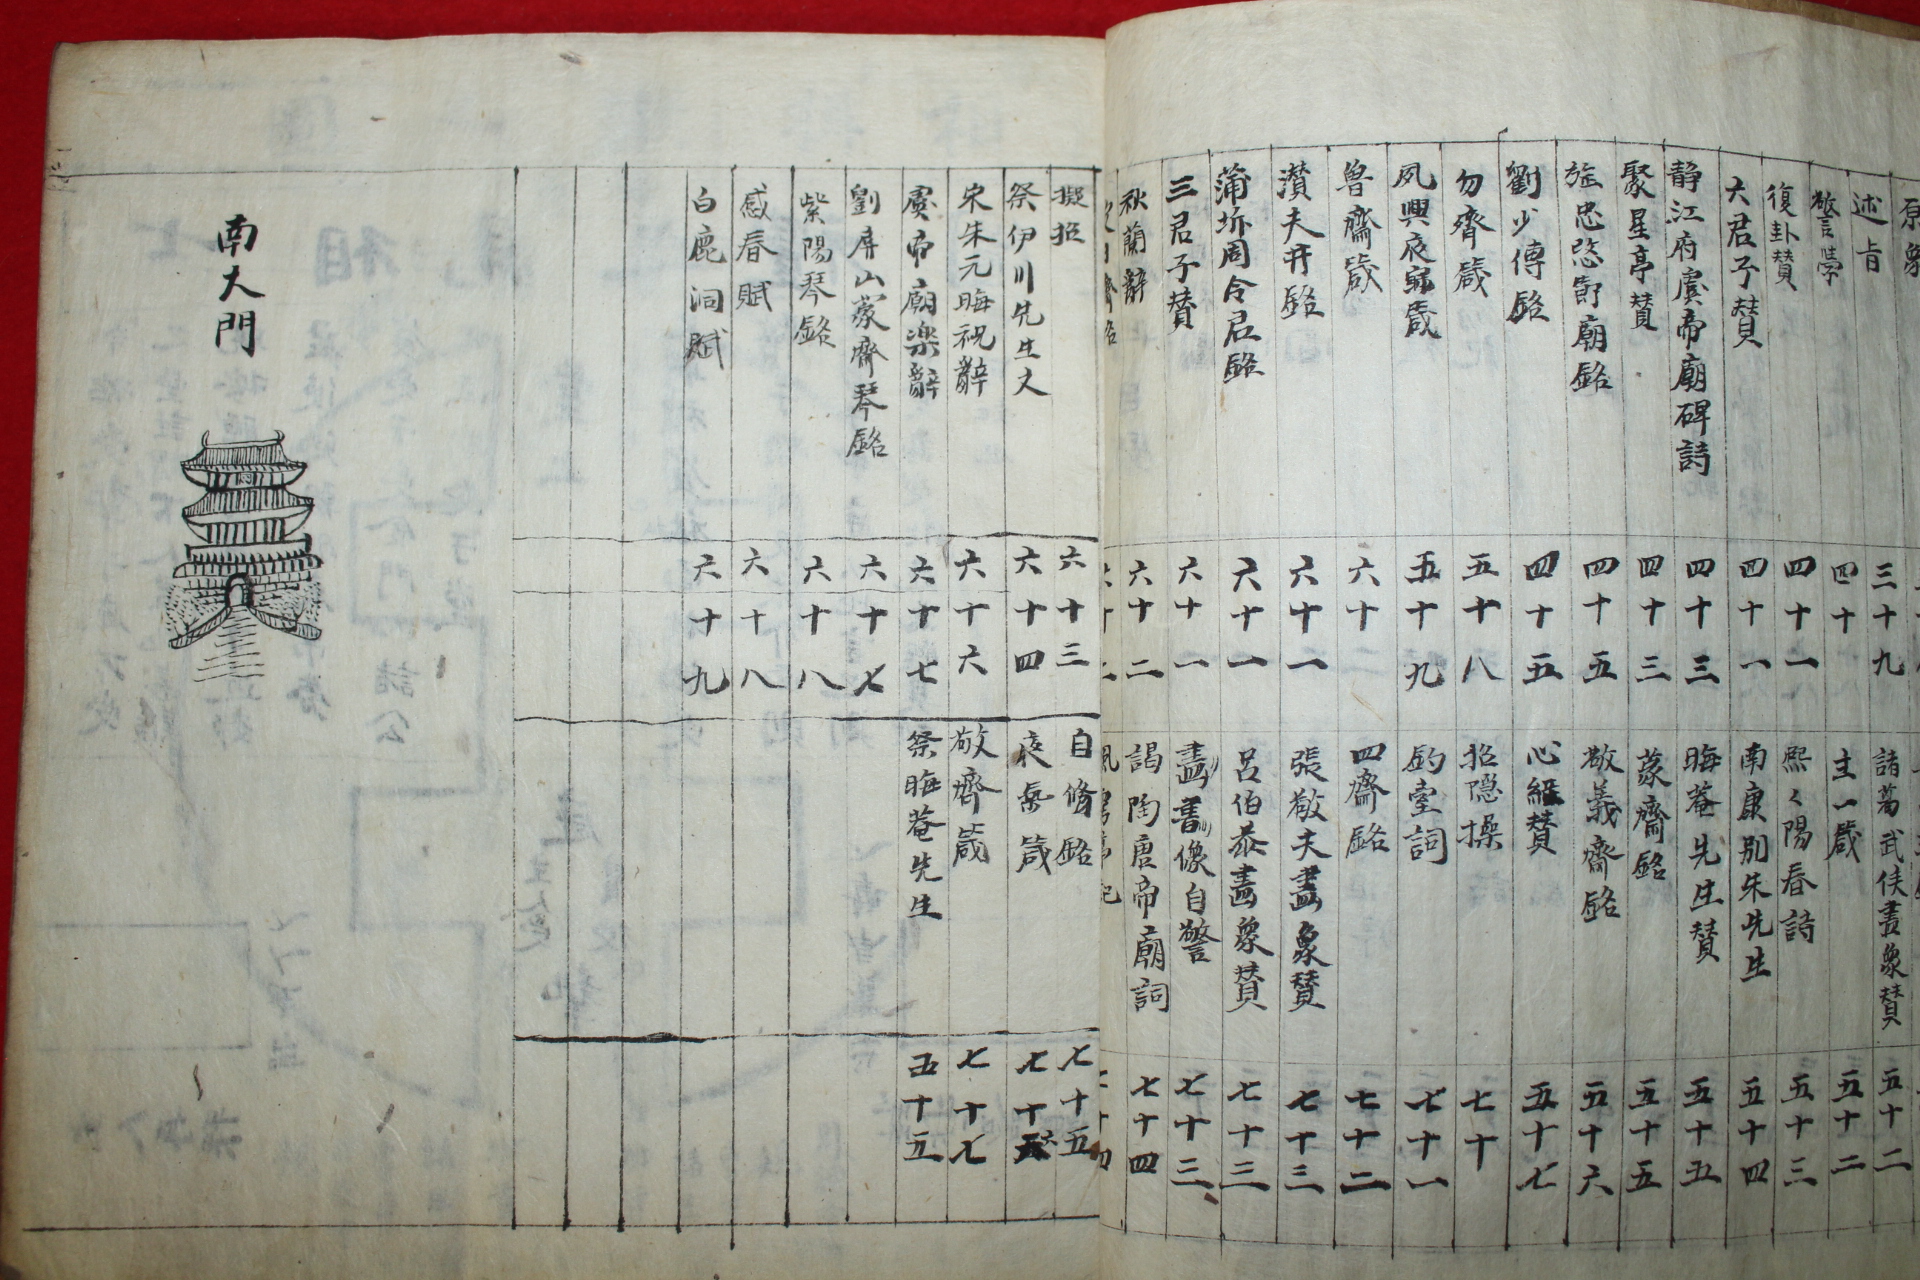 述旨 三十九 諸葛武侯畫象贊 五十二
警學 四十 主一箴 五十二
復卦贊 四十一 熙々陽春詩 五十三
六君子贊 四十一 南康別朱先生 五十四
靜江府虞帝廟碑詩 四十三 晦菴先生贊 五十五
聚星亭贊 四十三 蒙齋銘 五十五
旌忠愍節廟銘 四十五 敬義齋銘 五十六
劉少傅銘 四十五 心經贊 五十七
勿齊箴 五十八 招隱操 七十
夙興夜寐箴 五十九 釣臺詞 七十一
魯齋箴 六十 四齋銘 七十二
濽夫井銘 六十一 張敬夫畫象贊 七十三
蒲圻周令君銘 六十一 呂伯恭畫象贊 七十三
三君子贊 六十一 畫書像自警 七十三
秋蘭辭 六十二 謁陶唐帝廟詞 七十四
擬招 六十三 自脩銘 七十五
祭伊川先生文 六十四 夜氣箴 七十
宋朱元晦祝辭 六十六 敬齊箴 七十七
虞帝廟楽辭 六十七 祭晦菴先生 五十五
劉屏山蒙齋琴銘 六十七
紫陽琴銘 六十八
感春賦 六十八
白鹿洞賦 六十九
南大門